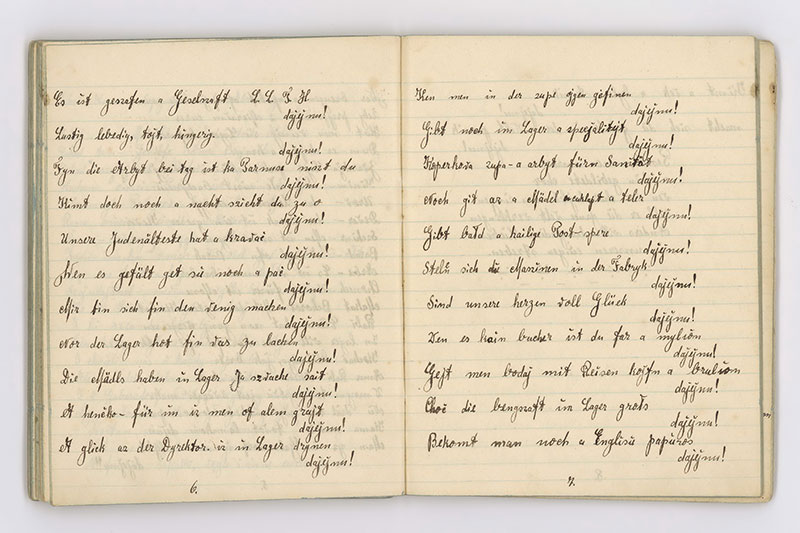 Es ist geszafen a Geselszaft L. L. F. H
dajejnu!
Lustig lebedig, tojt, hingerig.
dajejnu!
Fyn die Arbyt bei tag ist ka Parnuse niszt du
dajejnu!
Kimt doch noch a nacht szicht du zu o
dajejnu!
Unsere Judenälteste hat a kravać
dajejnu!
Wen es gefält get sie noch a pać
dajejnu!
Mir fin sich fin den wenig machen
dajejnu!
Nor der Lager hot fin was zu lachen
dajejnu!
Die Mädls haben in Lager Ja szwache sait
dajejnu!
A henćko- für im is men of alem grajt
dajejnu!
A glick az der Dyrektor is in Lager drynen
dajejnu!
6.
Ken men in der zupe gefinen
dajejnu!
Gibt noch im Lager a specjalitejt
dajejnu!
Koperkova zupa-a arbyt fürn Sanität
dajejnu!
Noch git az a Mädel schlept a teler
dajejnu!
Gibt bald a hailige Post-spere
dajejnu!
Steln sich die Maszinen in der Fabryk
dajejnu!
Sind unsere herzen voll Glück
dajejnu!
Den es kain bucher ist du far a mylion
dajejnu!
Gejt men bodaj mit Reisen kojfn a
dajejnu!
Choć die bengszaft im Lager groß
dajejnu!
Bekomt man noch a Englisz papiros
dajejnu!
7.